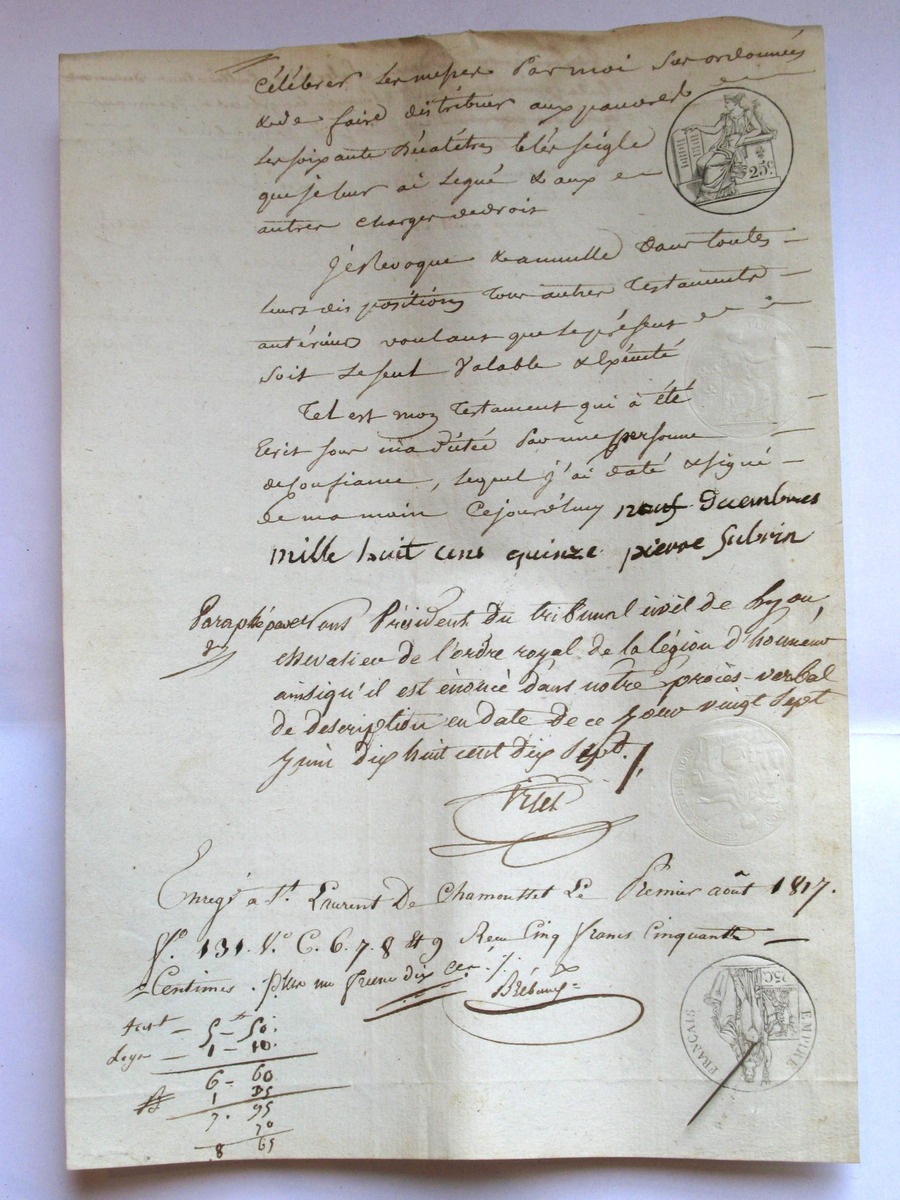 célébrer les messes par moi sus ordonnées
& de faire distribuer aux pauvres
les soixante Décalitres bled seigle
que je leur ai legué & aux
autres charges de droit
Je revoque & annulle dans toutes
leurs dispositions tous autres Testaments
antérieurs voulant que le présent
soit le seul Valable & Exécuté
Tel est mon Testament qui a été
Ecrit sous ma dictée par une personne
de confiance, lequel j'ai daté & signé
de ma main Cejourd'huy neuf decembres
mille huit cens quinze pierre Subrin
Paraphé par nous Président du tribunal civil de Lyon,
chevalier de l'ordre royal de la légion d'honneur
ainsiqu'il est énoncé dans notre procès-verbal
de description en date de ce jour vingt sept
juin dix huit cent dix sept.
Enregé a St. Laurent De Chamousset Le Premier août 1817.
fo. 131. Vo. C. 6. 7. 8 et 9 Reçu Cinq francs Cinquante
Centimes. plus un franc dix cen.
5 - 50.
1 - 10.
6 - 60
1 35
7. 95
70
8 65
25c.
EMPIRE FRANÇAIS
25C